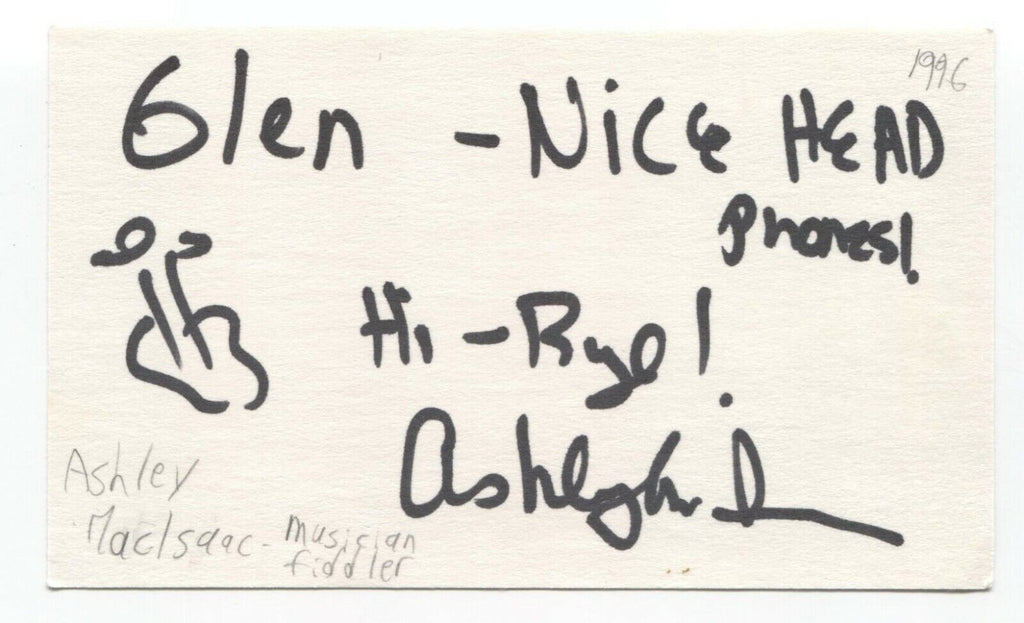 1996
Glen - NicE HEAD
Phones!
Hi - Rye!
Ashley
Ashley
MacIsaac - musician
fiddler